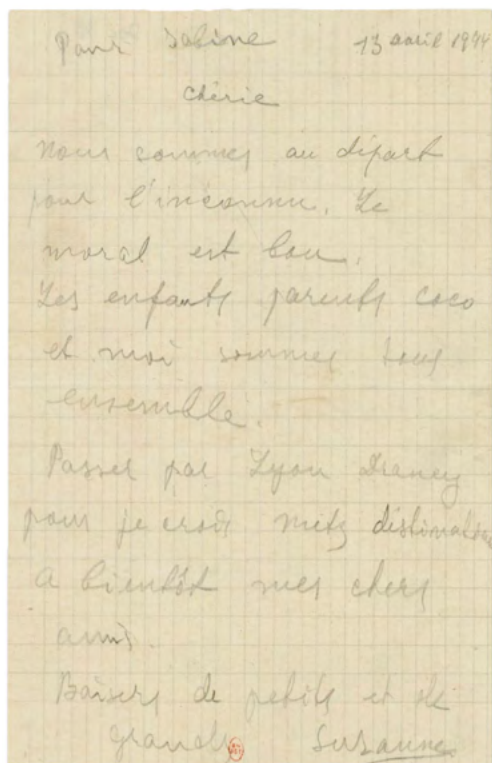 Pour Sabine 13 avril 1944
Chérie
Nous sommes au départ
pour l'inconnu. Le
moral est bon.
Les enfants parents coco
et moi sommes tous
ensemble.
Passer par Lyon Drancy
pour je crois metz déstination
A bientôt mes chers
amis.
Baisers de petits et de
grands Suzanne